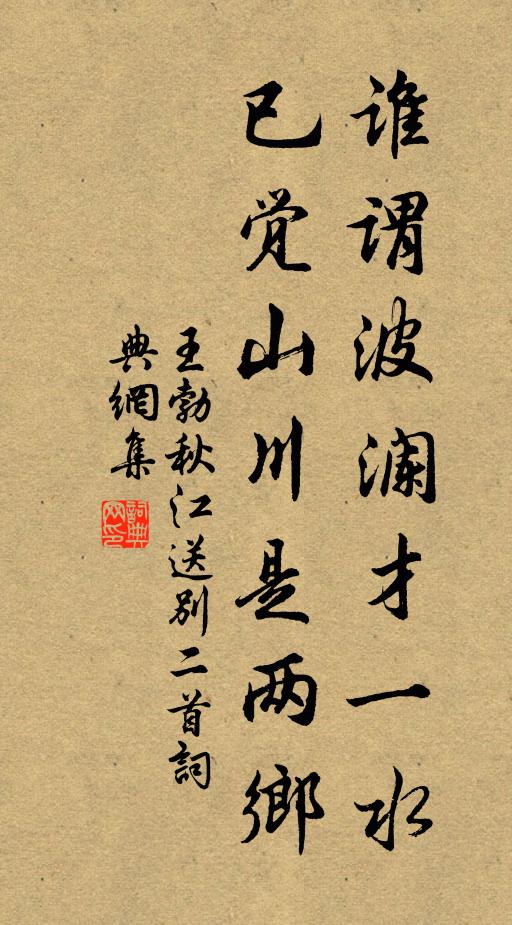 谁谓波澜才一水
已觉山川是两鄉
王勃秋江送别二首詞
典網集
詞典網印